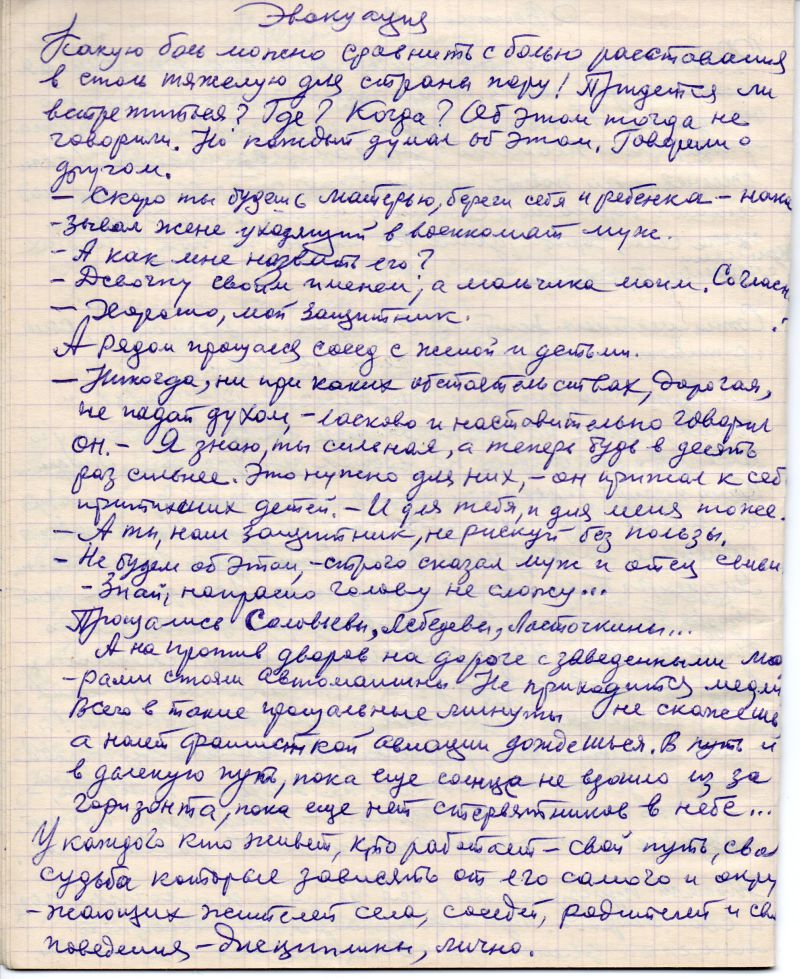 Эвакуация
Какую боль можно сравнить с болью расставания
в столь тяжелую для страны пору! Придется ли
встретиться? Где? Когда? Об этом тогда не
говорили. Но каждый думал об этом. Говорили о
другом.
— Скоро ты будешь матерью, береги себя и ребенка – нака
-зывал жене уходящий в военкомат муж.
- А как мне назвать его?
- Девочку своим именем, а мальчика моим. Соглас
— Хорошо, мой защитник. ?
А рядом прощался сосед с женой и детьми.
— Никогда, ни при каких обстоятельствах, дорогая,
не падай духом, – ласково и наставительно говорил
он. – Я знаю, ты сильная, а теперь будь в десять
раз сильнее. Это нужно для них, – он прижал к себ
притихших детей. – И для тебя, и для меня тоже.
— А ты, наш защитник, не рискуй без пользы.
- Не будем об этом, – строго сказал муж и отец семьи
- Знай, напрасно голову не сложу...
Прощались Соловьевы, Лебедевы, Ласточкины...
А на против дворов на дороге с заведенными мо
-рами стояли автомашины. Не приходится медли
Всего в такие прощальные минуты не скажешь
а налет фашисткой авиации дождешься. В путь и
в далекую путь, пока еще солнце не взошло из за
горизонта, пока еще нет стервятников в небе...
У каждого кто живет, кто работает – свой путь, сво
судьба которые зависять от его самого и окру
-жающих жителей села, соседей, родителей и сво
поведения – дисциплины, лично.